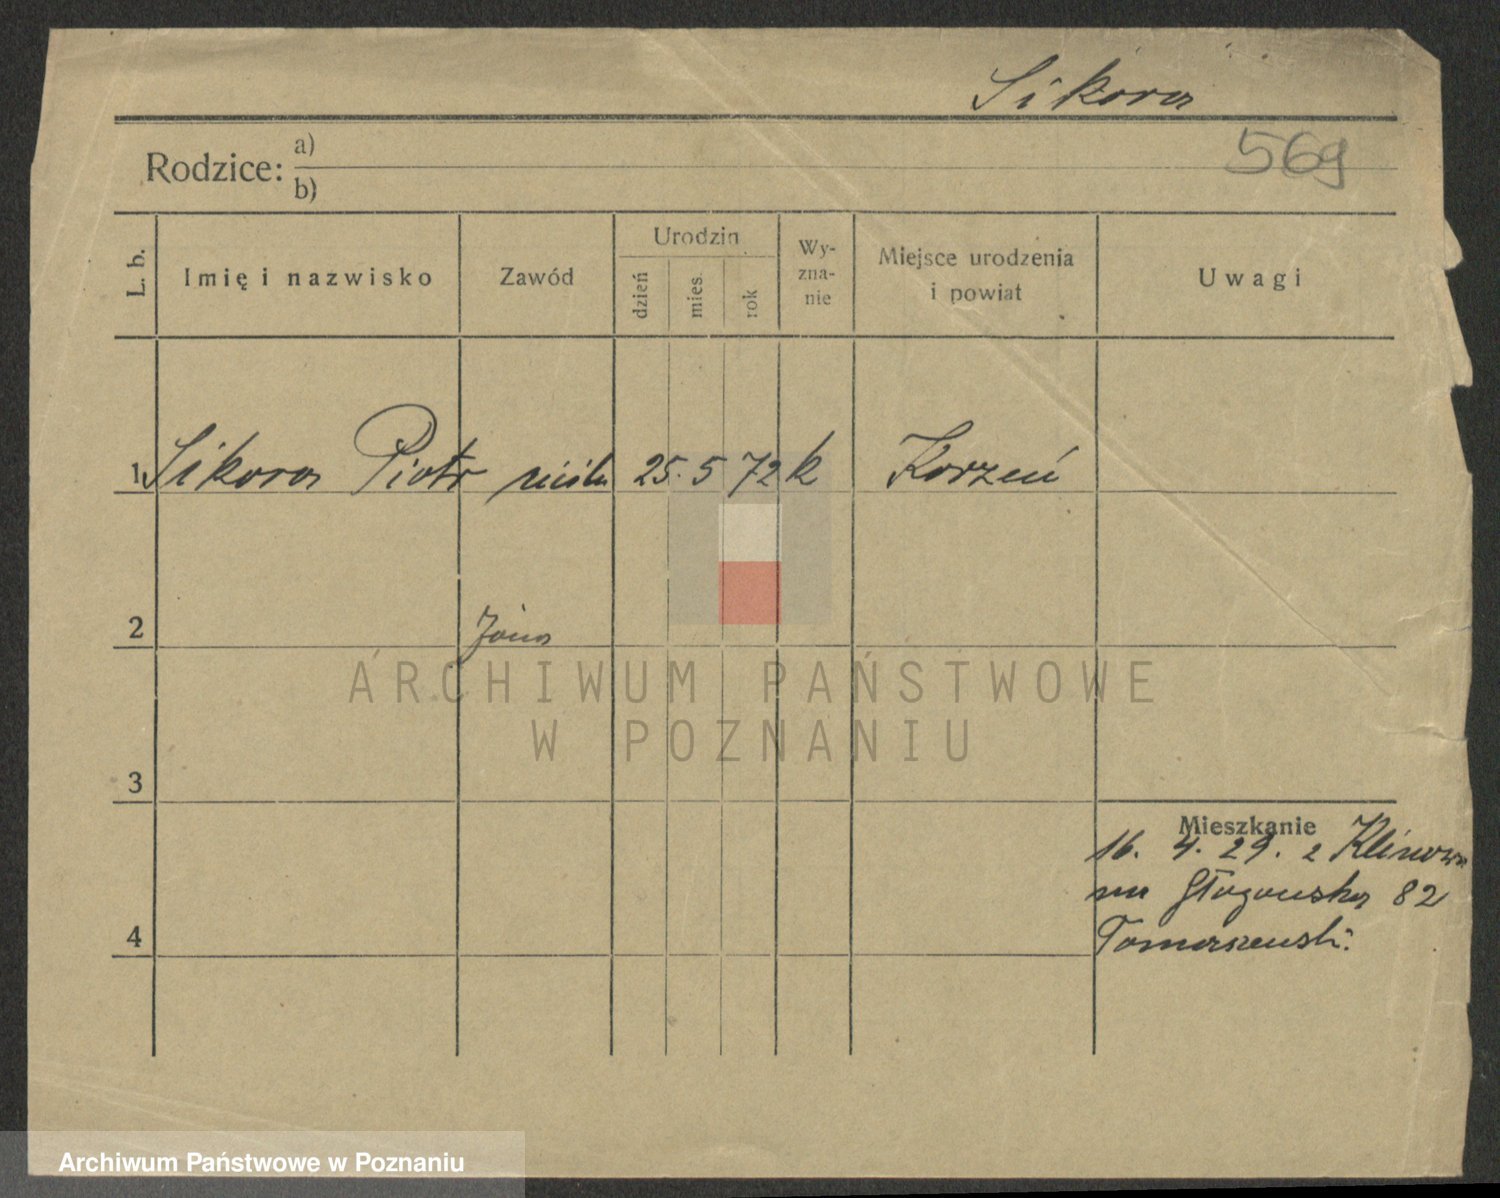 Sikora
569
Rodzice: a)
b)
L. b. Imię i nazwisko Zawód Urodzin dzień mies. rok Wy-zna-nie Miejsce urodzenia i powiat Uwagi
1 Sikora Piotr 25. 5 72 k Korzeń
2
ARCHIWUM PAŃSTWOWE
W POZNANIU
3
Mieszkanie
16. 4. 29. z Klinowa
na Głogowska 82
4 Tomaszewski.
Archiwum Państwowe w Poznaniu